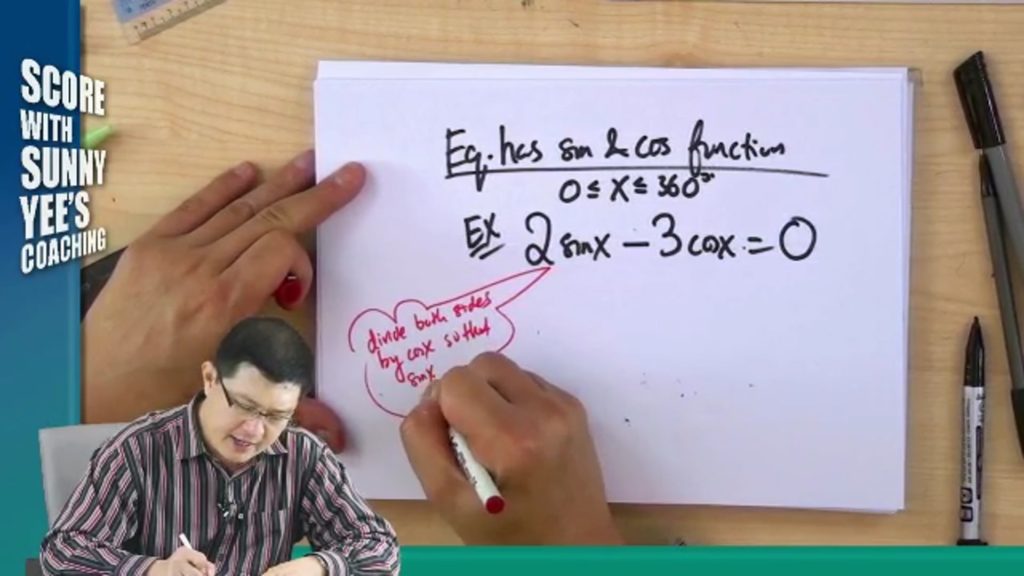 SCORE
WITH
SUNNY
YEE'S
COACHING
Eq. has sin & cos function
0 ≤ x ≤ 360°
EX 2 sinx - 3 cosx = 0
divide both sides
by cosx so that
sinx